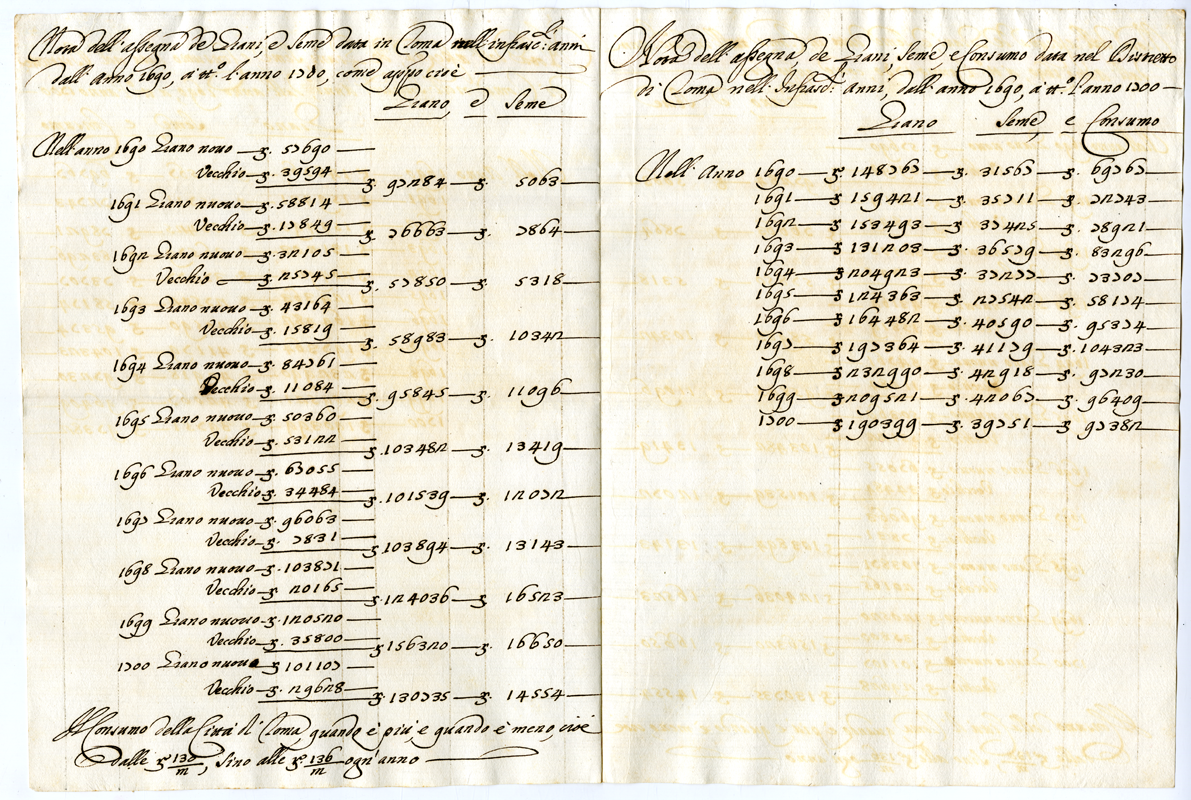 Nota dell'assegna de Grani, e Seme data in Roma nell'infrasc.ti anni
dall'Anno 1690, a tt.o l'anno 1700, come appo cioè
Grano e Seme
Nell'anno 1690 Grano novo — R. 57690
Vecchio — R. 39594
R. 97284 — R. 5063
1691 Grano nuovo — R. 58814
Vecchio — R. 17849
R. 76663 — R. 7864
1692 Grano nuovo — R. 32105
Vecchio — R. 25745
R. 57850 — R. 5318
1693 Grano nuovo — R. 43164
Vecchio — R. 15819
R. 58983 — R. 10342
1694 Grano nuovo — R. 84761
Vecchio — R. 11084
R. 95845 — R. 11096
1695 Grano nuovo — R. 50360
Vecchio — R. 53122
R. 103482 — R. 13419
1696 Grano nuovo — R. 67055
Vecchio — R. 34484
R. 101539 — R. 12072
1697 Grano nuovo — R. 96063
Vecchio — R. 7831
R. 103894 — R. 13143
1698 Grano nuovo — R. 103871
Vecchio — R. 20165
R. 124036 — R. 16523
1699 Grano nuovo — R. 120520
Vecchio — R. 35800
R. 156320 — R. 16650
1700 Grano nuovo — R. 101107
Vecchio — R. 29628
R. 130735 — R. 14554
Il Consumo della Città di Roma, quando è più, e quando è meno, cioè
dalle R. 130/m, sino alle R. 136/m ogn'anno
Nota dell'assegna de Grani, Seme e Consumo data nel Distretto
di Roma nell'Infrasc.ti anni, dall'anno 1690, a tt.o l'anno 1700
Grano Seme, e Consumo
Nell'Anno 1690 — R. 148763 — R. 31563 — R. 69763
1691 — R. 159421 — R. 35711 — R. 72743
1692 — R. 153493 — R. 37425 — R. 78921
1693 — R. 131203 — R. 36579 — R. 83296
1694 — R. 204923 — R. 37277 — R. 77707
1695 — R. 124363 — R. 27542 — R. 58174
1696 — R. 164482 — R. 40590 — R. 95374
1697 — R. 197364 — R. 41179 — R. 104323
1698 — R. 232990 — R. 42918 — R. 97230
1699 — R. 209521 — R. 42067 — R. 96409
1700 — R. 190399 — R. 39751 — R. 97382